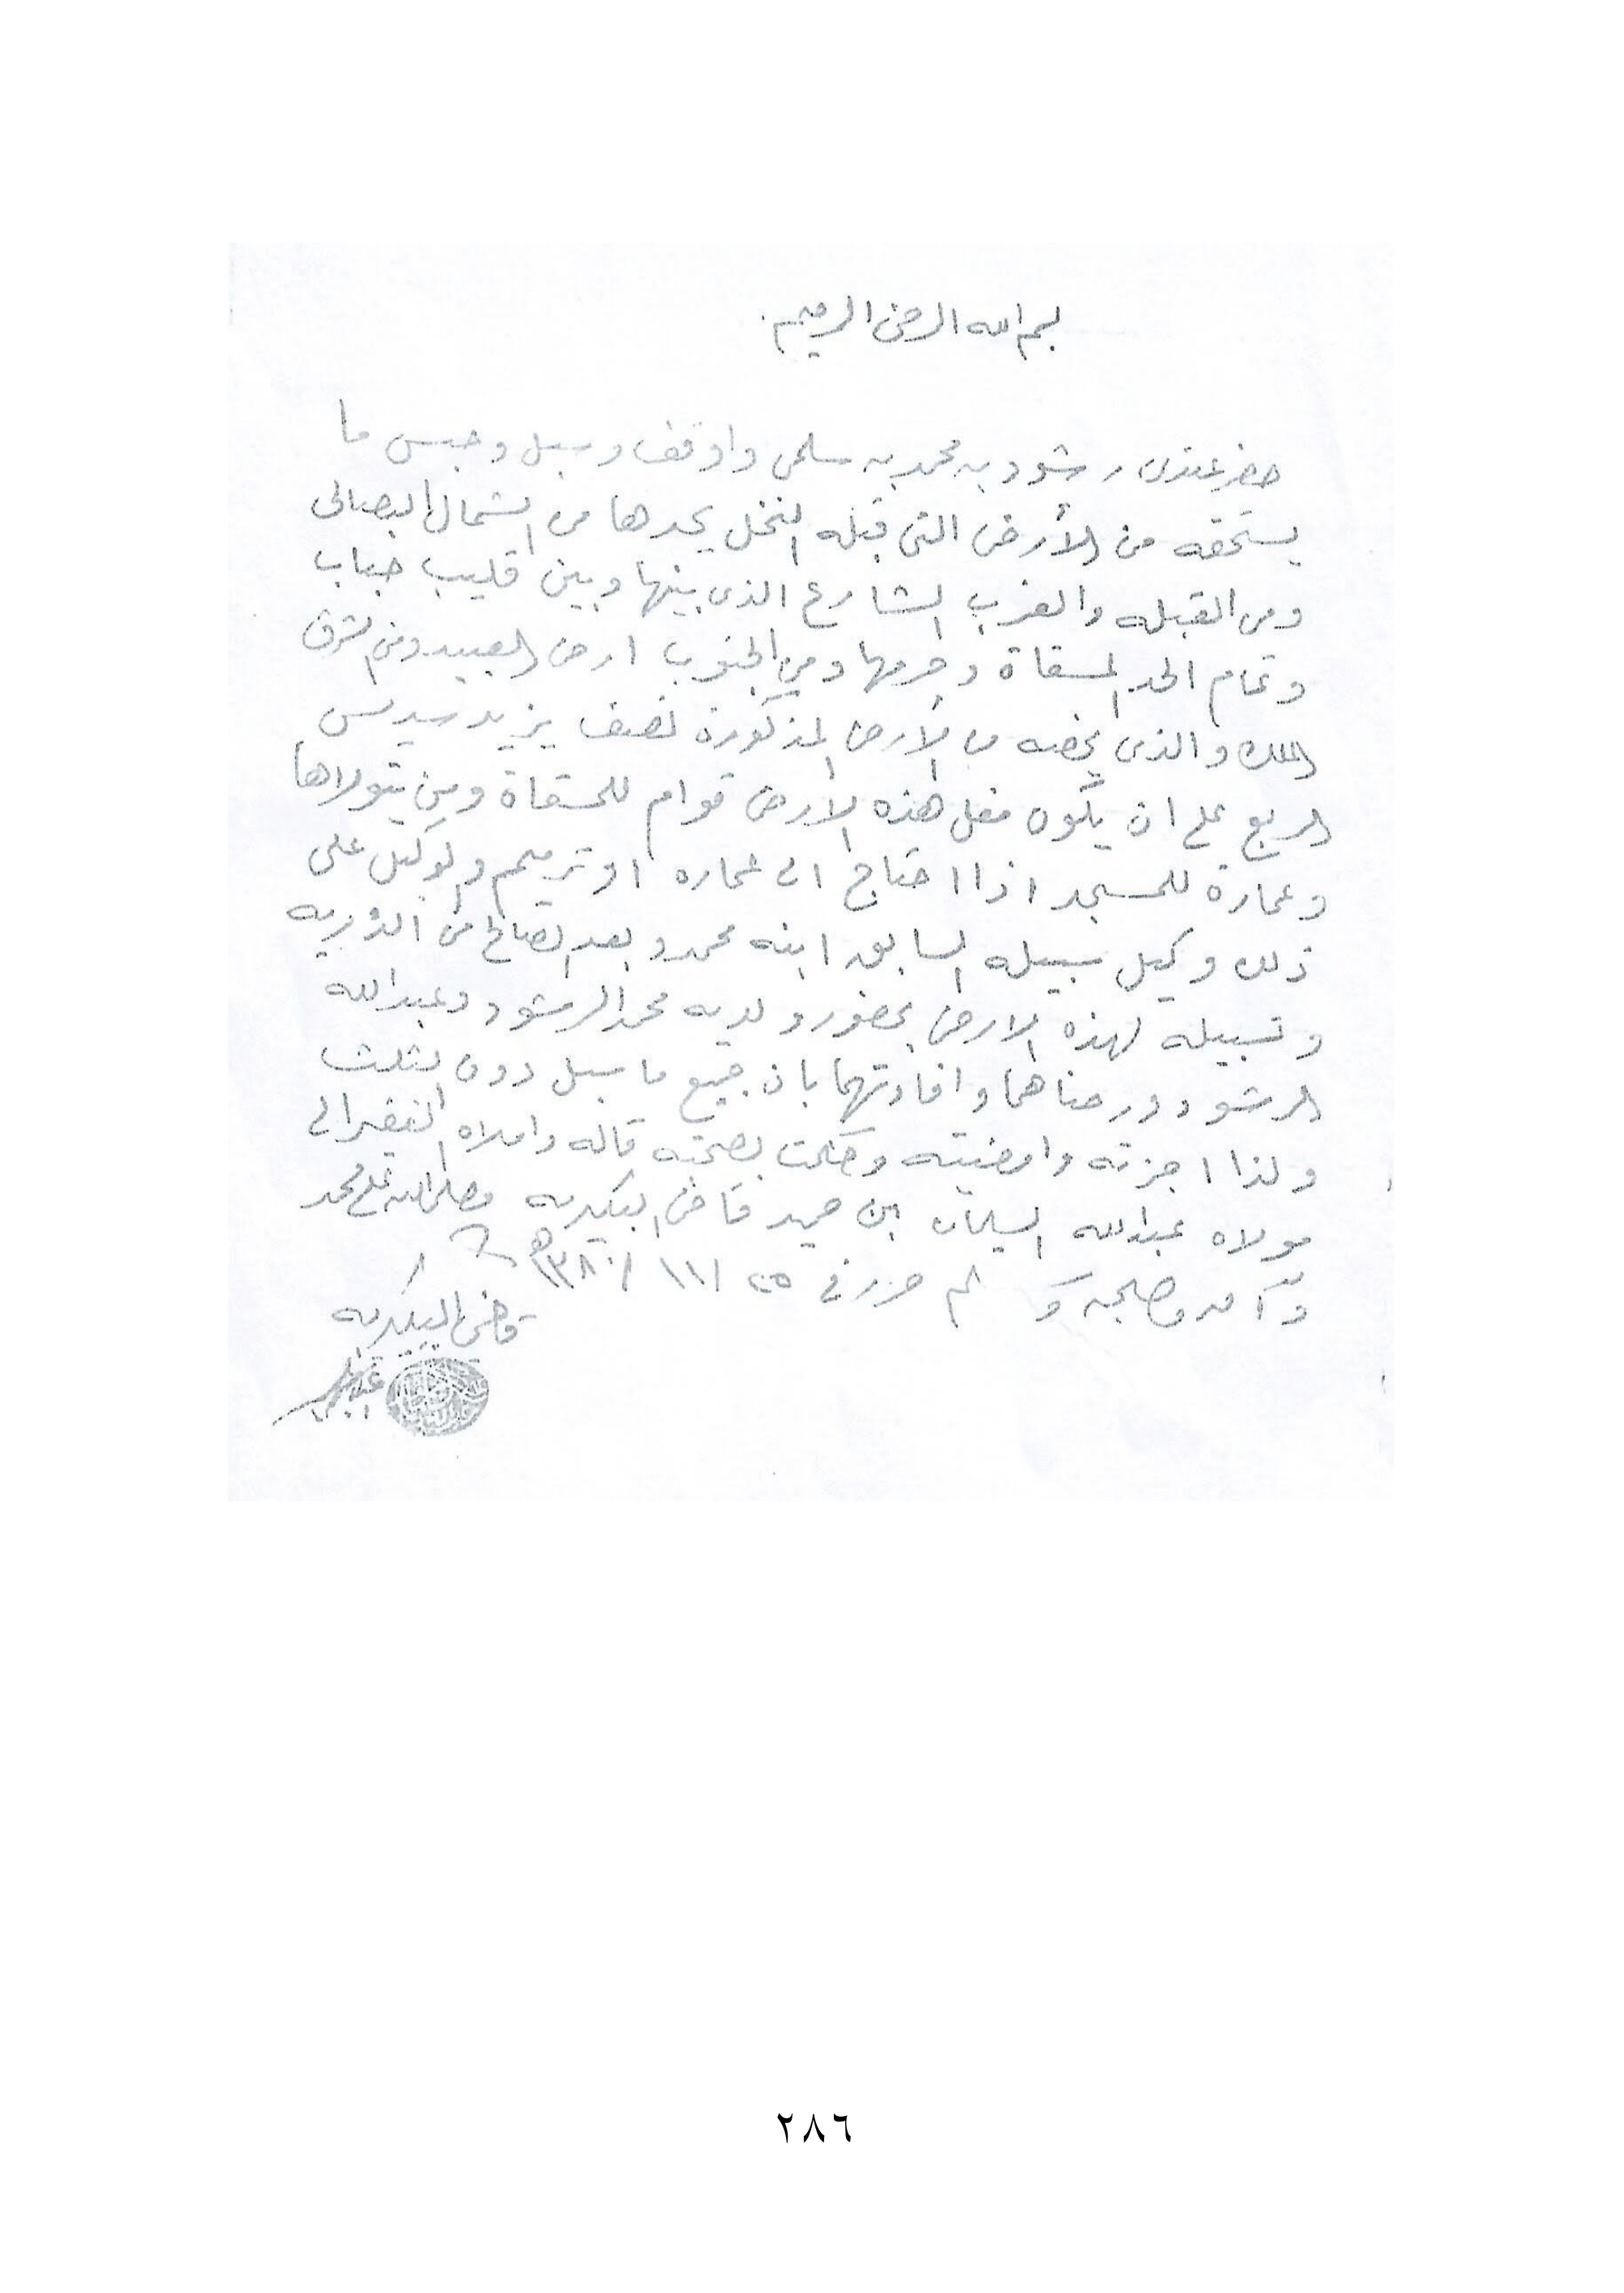 بسم الله الرحمن الرحيم
حضر عندي رشود بن محمد بن سلمى واوقف وسبل وحبس ما
يستحقه من الأرض التي قبله النخل يحدها من الشمال البصالى
ومن القبله والغرب الشارع الذي بينها وبين قليب حباب
وتمام الحد المسقاة وحرمها ومن الجنوب ارض العبيد ومن الشرق
الملك والذي يخصه من الأرض المذكورة نصف يزيد سديس
الربع على ان يكون مغل هذه الارض قوام للمسقاة ومن يتولاها
وعمارة للمسجد اذا احتاج الى عماره او ترميم والوكيل على
ذلك وكيل سبيله السابق ابنه محمد وبعد الصالح من الذريه
وتسبيله لهذه الارض بحضور ولديه محمد الرشود وعبدالله
الرشود ورضاهما وافادتهما بان جميع ما سبل دون الثلث
ولذا اجزته وامضيته وحكمت بصحته قاله واملاه الفقير الى
مولاه عبدالله السليمان ابن حميد قاضي البكيريه وصلى الله على محمد
وآله وصحبه وسلم حرر في ٢٥/ ١١/ ١٣٨٠هـ
قاضي البكيريه
٢٨٦